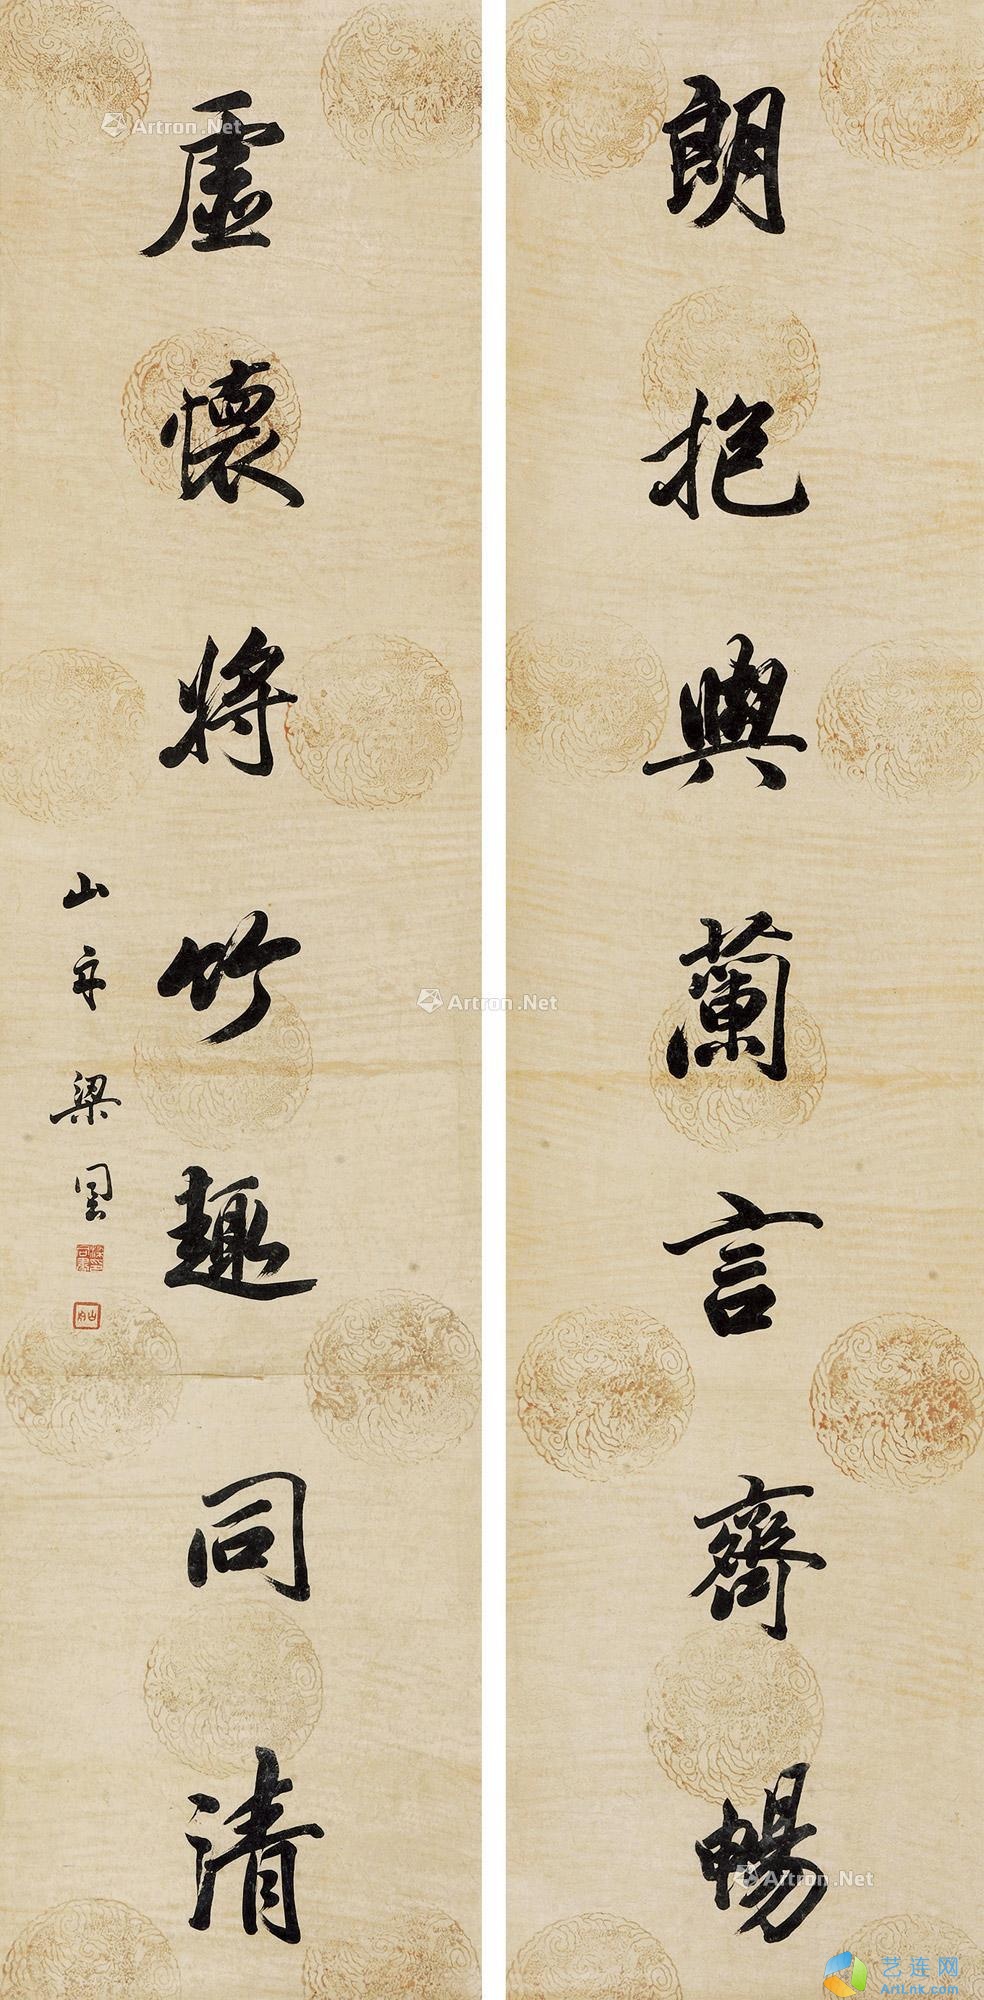 朗抱與蘭言齊暢
虛懷將竹趣同清
山舟梁同書
梁同書印
山舟
Artron.Net
Artron.Net
Artron.Net
艺连网
ArtLnk.com